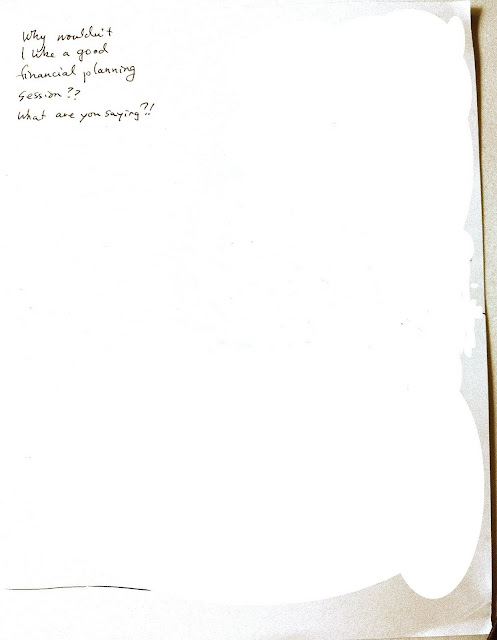 Why wouldn't
I like a good
financial planning
session??
What are you saying?!!